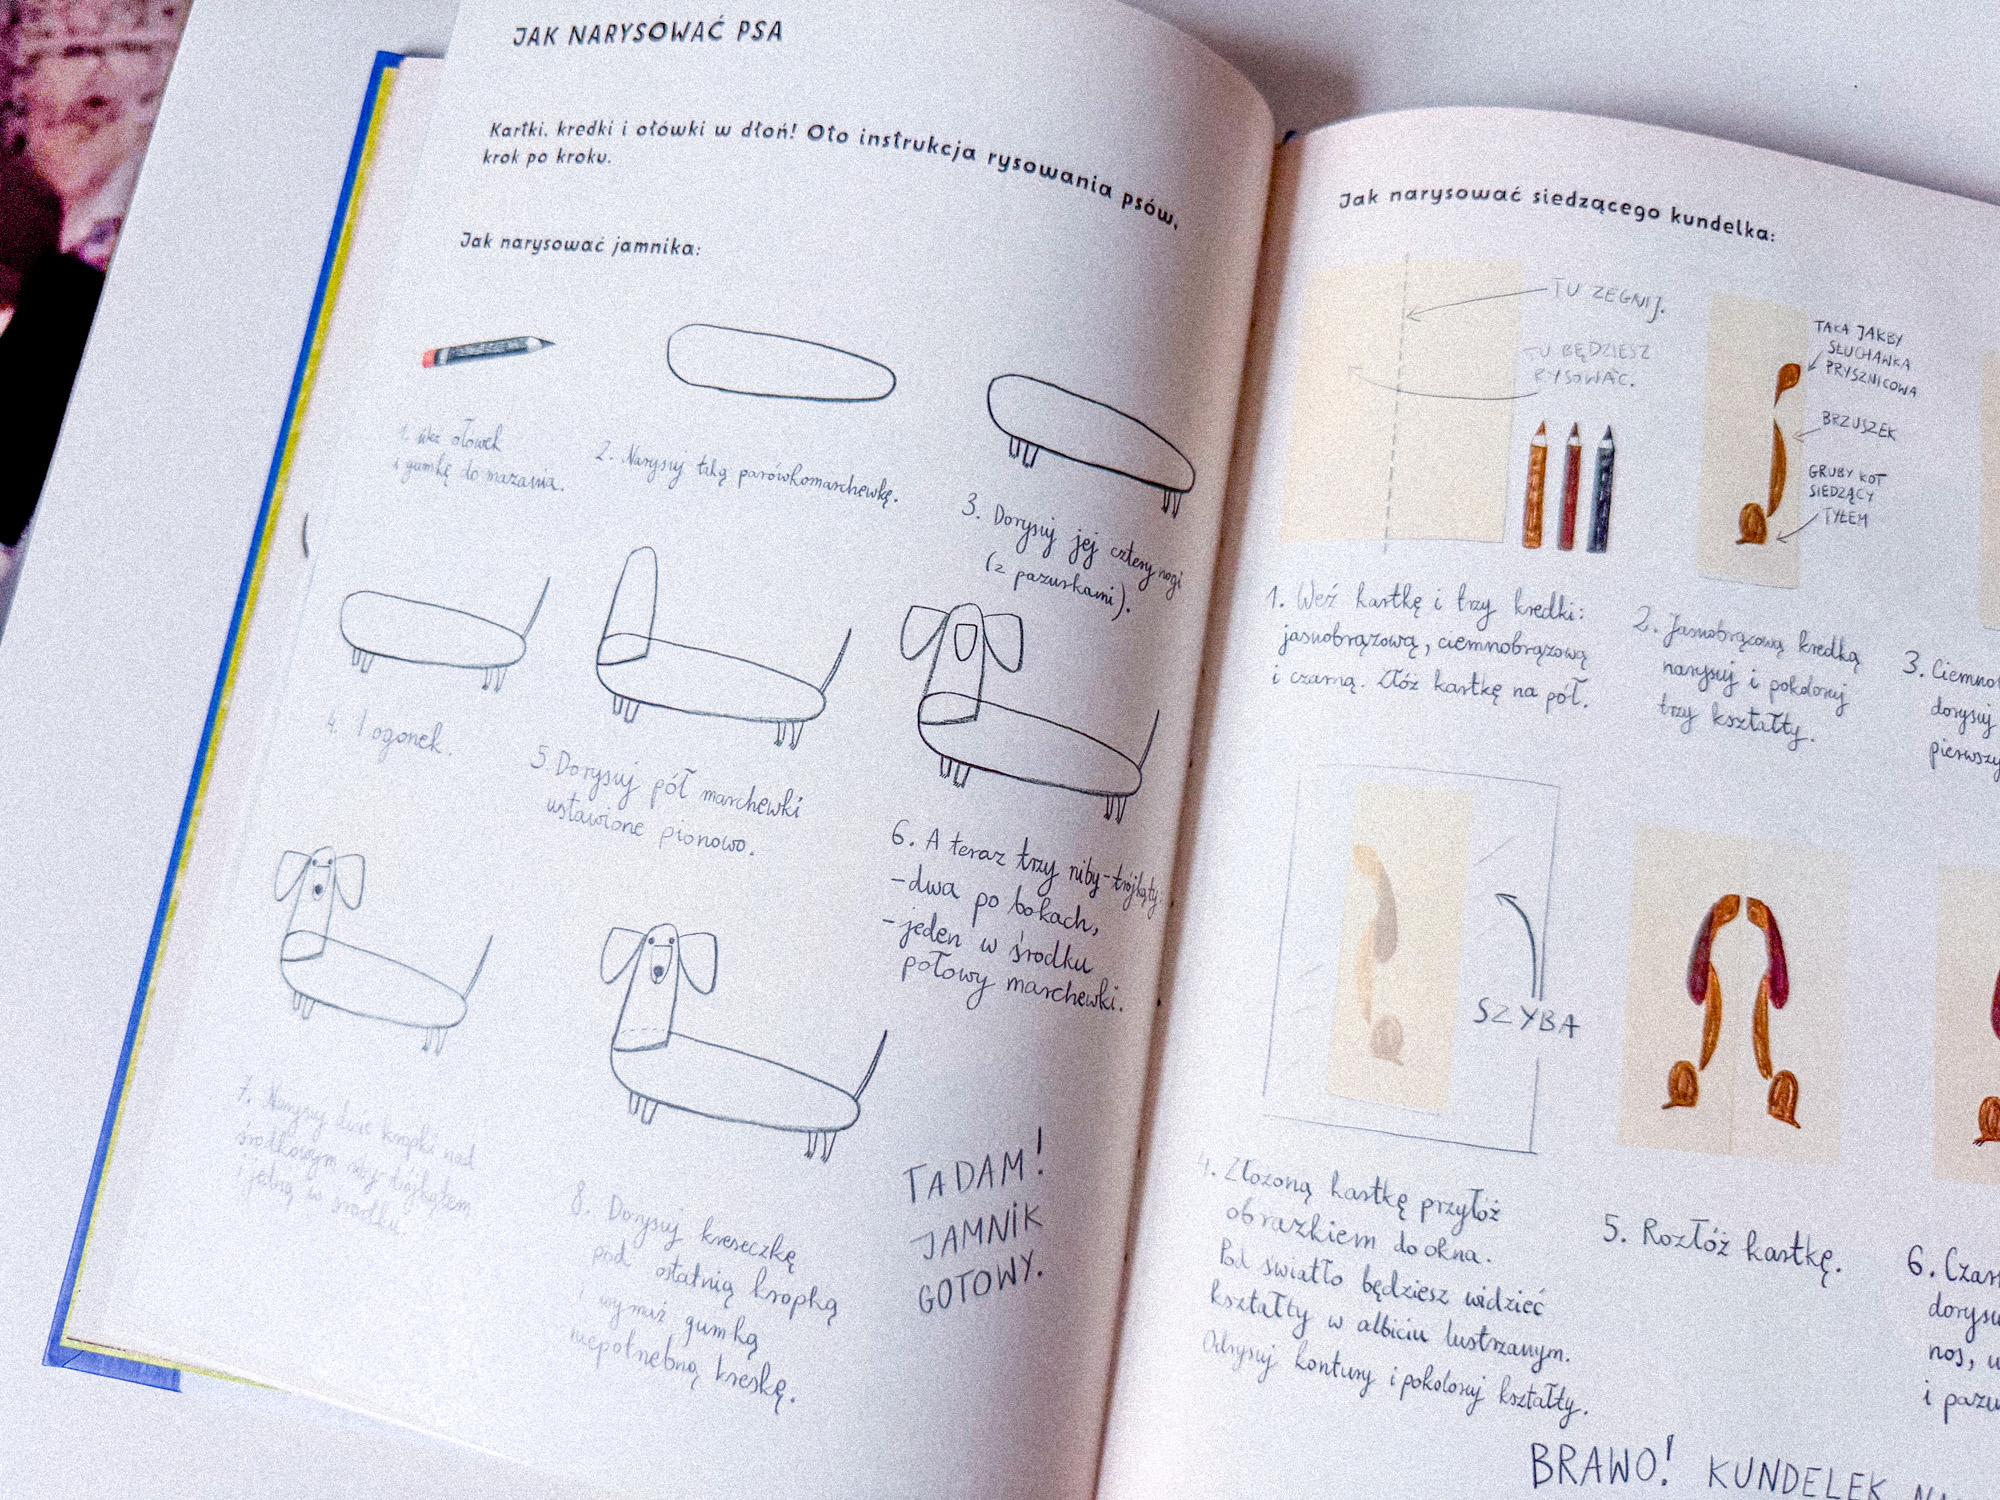 JAK NARYSOWAĆ PSA
Kartki, kredki i ołówki w dłoń! Oto instrukcja rysowania psów,
krok po kroku.
Jak narysować jamnika:
1. Weź ołówek
i gumkę do mazania.
2. Narysuj taką parówkomarchewkę.
3. Dorysuj jej cztery nogi
(z pazurkami).
4. I ogonek.
5. Dorysuj pół marchewki
ustawione pionowo.
6. A teraz trzy niby-trójkąty:
-dwa po bokach,
-jeden w środku
połowy marchewki.
7. Narysuj dwie kropki nad
środkowym niby-trójkątem
i jedną w środku.
8. Dorysuj kreseczkę
pod ostatnią kropką
i wymaż gumką
niepotrzebną kreskę.
TADAM!
JAMNIK
GOTOWY.
Jak narysować siedzącego kundelka:
TU ZEGNIJ.
TU BĘDZIESZ
RYSOWAĆ.
TAKA JAKBY
SŁUCHAWKA
PRYSZNICOWA
BRZUSZEK
GRUBY KOT
SIEDZĄCY
TYŁEM
1. Weź kartkę i trzy kredki:
jasnobrązową, ciemnobrązową
i czarną. Złóż kartkę na pół.
2. Jasnobrązową kredką
narysuj i pokoloruj
trzy kształty.
3. Ciemno
dorysuj
pierwszy
SZYBA
4. Złożoną kartkę przyłóż
obrazkiem do okna.
Pod światło będziesz widzieć
kształty w odbiciu lustrzanym.
Odrysuj kontury i pokoloruj kształty.
5. Rozłóż kartkę.
6. Czar
dorysu
nos, u
i pazu
BRAWO! KUNDELEK